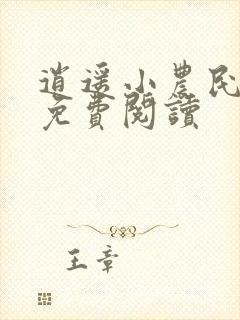 逍遥小農民
免費閱讀
王章